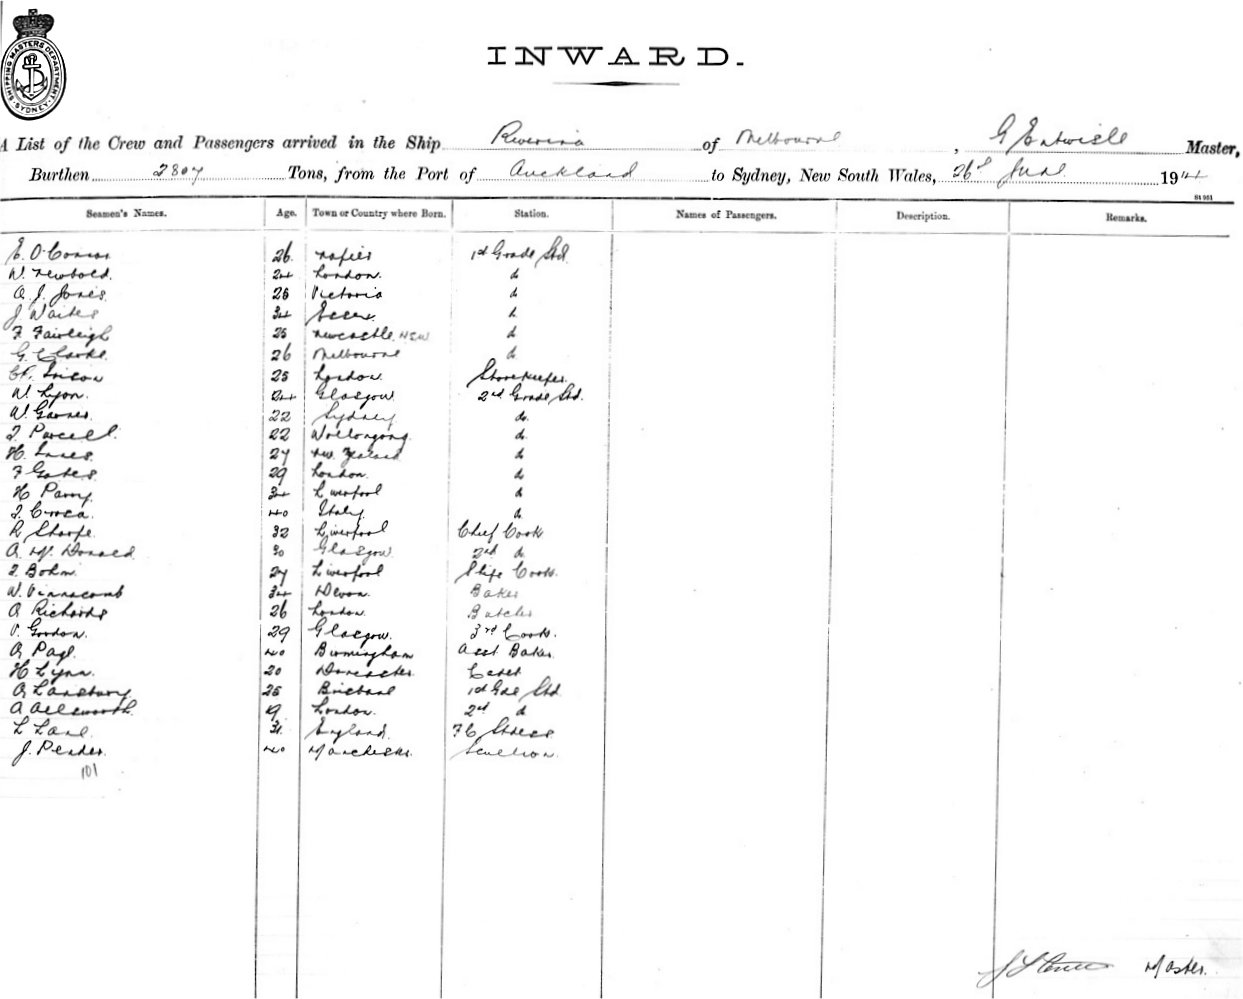 SHIPPING MASTERS DEPARTMENT SYDNEY
INWARD.
A List of the Crew and Passengers arrived in the Ship Riverina of Melbourne, G Entwisle Master,
Burthen 2807 Tons, from the Port of Auckland to Sydney, New South Wales, 26th June 19
St 951
Seamen's Names. Age. Town or Country where Born. Station. Names of Passengers. Description. Remarks.
E. O'Connor 26 Napier 1st Grade Std.
W. Newbold. 24 London. do
A. J. Jones. 25 Victoria do
J Waites 34 Essex. do
F. Fairleigh 25 Newcastle. NSW do
G. Clarke. 26 Melbourne do
25 London. Storekeeper.
W. Lyon. 24 Glasgow 2nd Grade Std.
W. Garner. 22 Sydney do
T. Purcell. 22 Wollongong do
H. 27 New Zealand do
F Gates. 29 London. do
H Parry. 34 Liverpool do
40 Italy. do
R Sharpe. 32 Liverpool Chief Cook
A. McDonald. 30 Glasgow 2nd do
T. Bohm. 27 Liverpool Ships Cook.
W. Vinnacomb 34 Devon. Baker
A Richards 26 London. Butcher
Gordon. 29 Glasgow. 3rd Cook.
A. Page. 40 Birmingham Asst Baker.
H Lynn. 20 Doncaster. Cadet
A Lansbury. 25 Brisbane 1st Gde Std.
A Ailsworth. 19 London. 2nd do
L Lane. England.
J. Pender. 40 Manchester. Scullion.
101
Master.